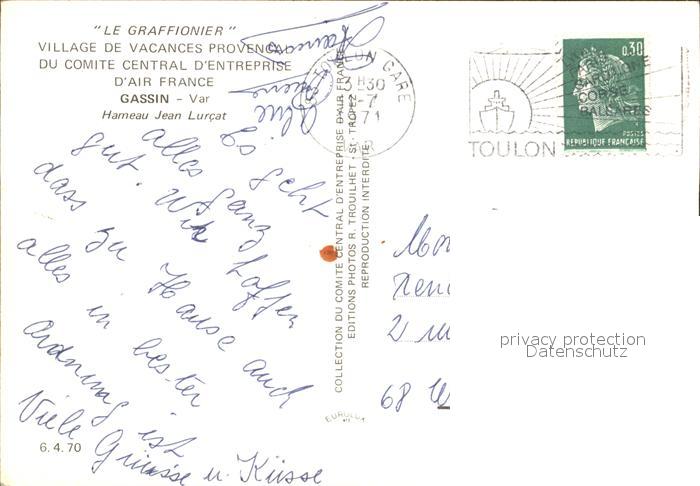 "LE GRAFFIONIER"
VILLAGE DE VACANCES PROVENÇAL
DU COMITE CENTRAL D'ENTREPRISE
D'AIR FRANCE
GASSIN - Var
Hameau Jean Lurçat
Es geht
alles ganz
gut. Wir hoffen
dass zu Hause auch
alles in bester
Ordnung ist
Viele Grüsse u. Küsse
6.4.70
COLLECTION DU COMITE CENTRAL D'ENTREPRISE D'AIR FRANCE
EDITIONS PHOTOS R. TROUILHET - St. TROPEZ
REPRODUCTION INTERDITE
EUROLUX
TOULON GARE
30
-7
1971
TOULON
CORSE
BALEARES
0,30
POSTES
REPUBLIQUE FRANÇAISE
Mon
Ren
2
68 W
privacy protection
Datenschutz